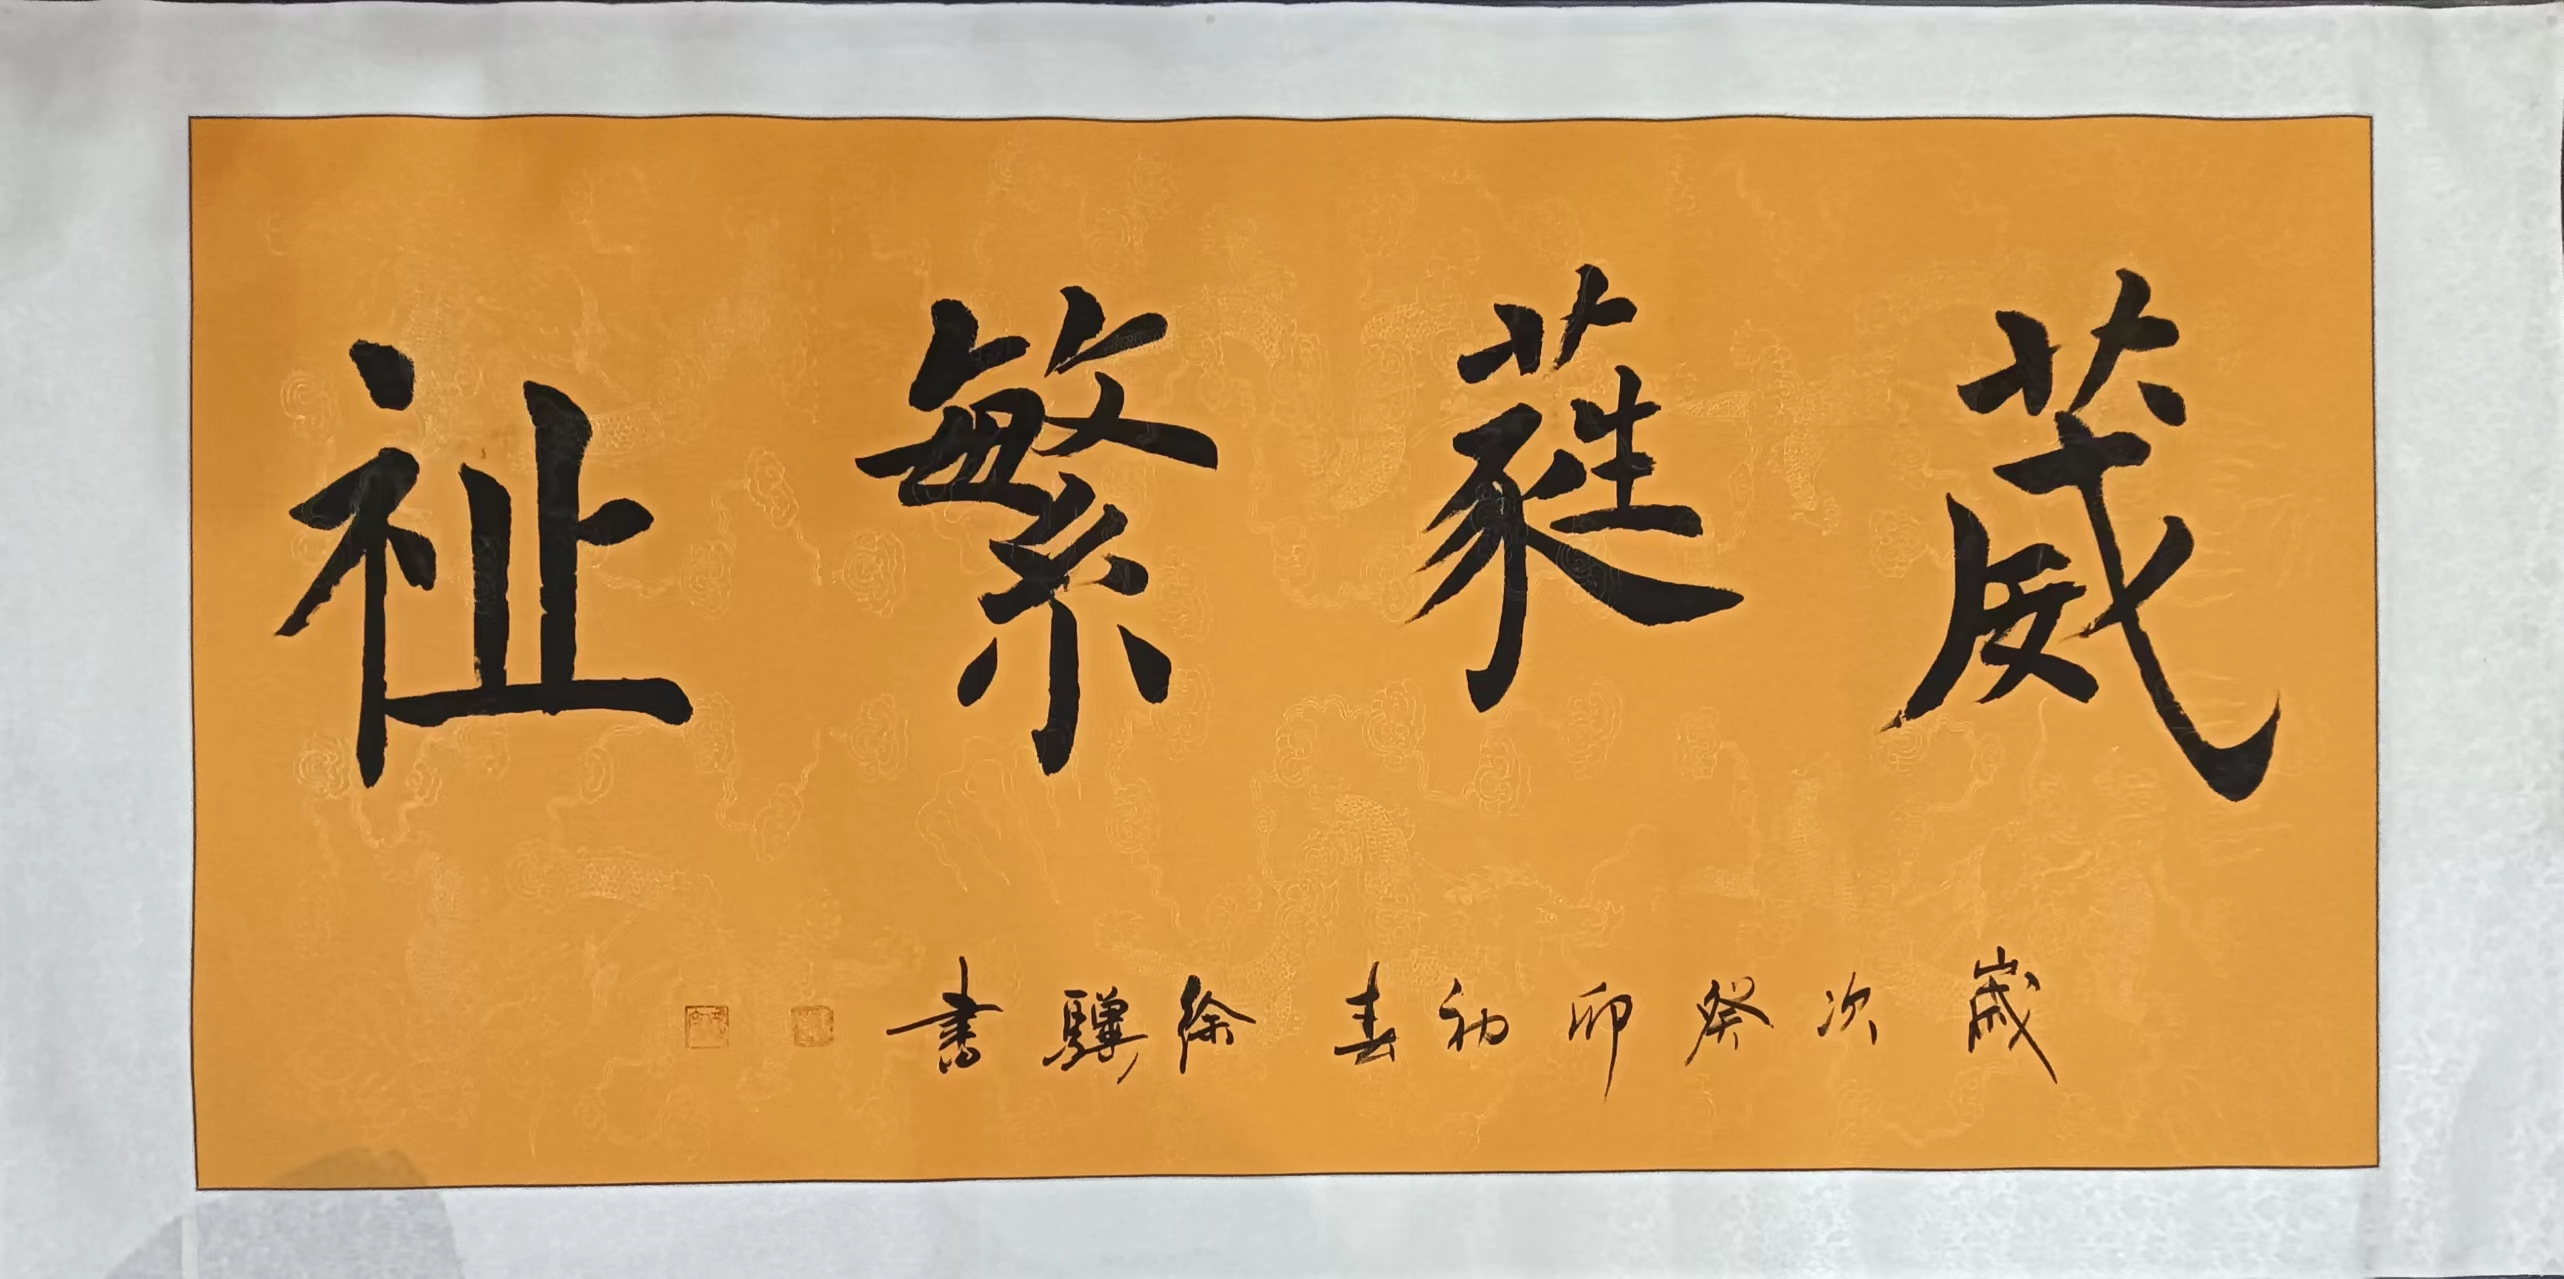 葳蕤繁祉
歲次癸卯初春徐驥書